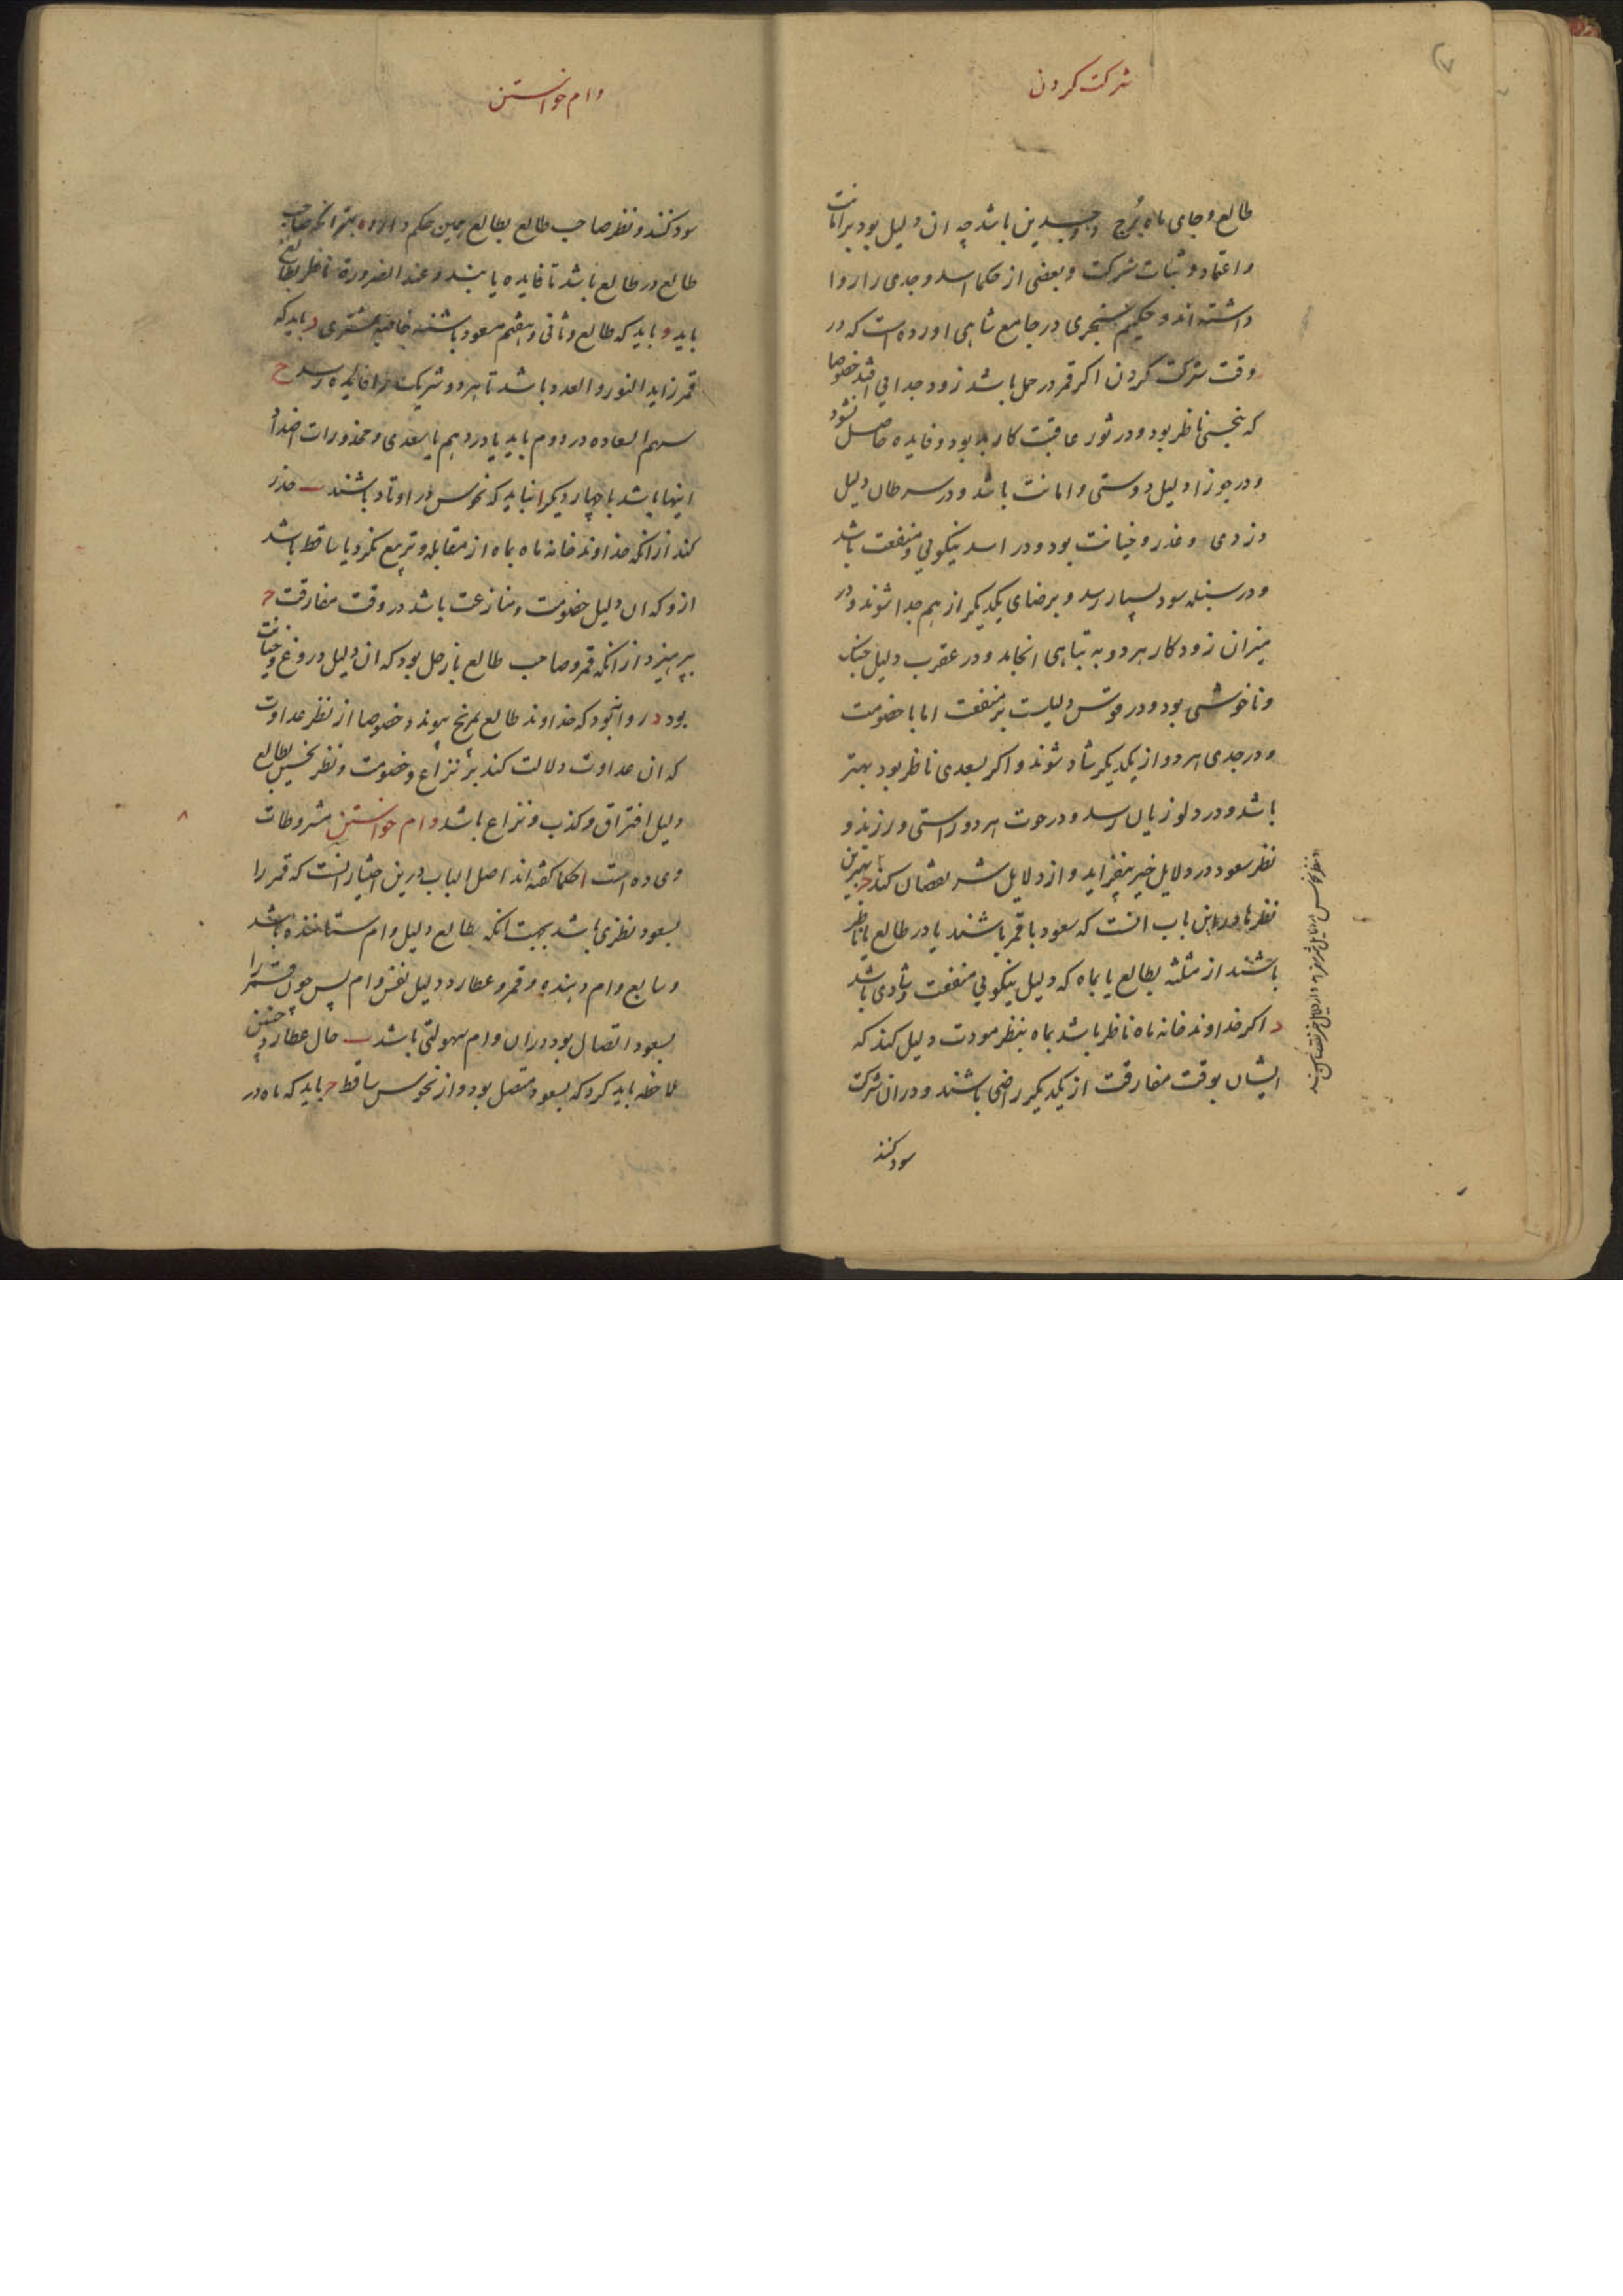 شرکت کردن
طالع و جای ماه برج ذو جسدین باشد چه ان دلیل بود بر امانت
و اعتماد و ثبات شرکت و بعضی از حکما اسد و جدی را روا
داشته اند و حکیم سنجری در جامع شاهی اورده است که در
وقت شرکت کردن اکر قمر در حمل باشد زود جدایی افتد خصوصا
که بنحسی ناظر بود و در ثور عاقبت کار بد بود و فایده حاصل نشود
و در جوزا دلیل دوستی و امانت باشد و در سرطان دلیل
دزدی و غدر و خیانت بود و در اسد نیکویی و منفعت باشد
و در سنبله سود بسیار رسد و برضای یکدیکر از هم جدا شوند و در
میزان زود کار هر دو به تباهی انجامد و در عقرب دلیل جنک
و ناخوشی بود و در قوس دلیلست بر منفعت اما با خصومت
و در جدی هر دو از یکدیکر شاد شوند و اکر بسعدی ناظر بود بهتر
باشد و در دلو زیان رسد و در حوت هر دو راستی ورزند و
نظر سعود در دلایل خیر بیفزاید و از دلایل شر نقصان کند ج بهترین
نظرها درین باب انست که سعود با قمر باشند یا در طالع یا ناظر
باشند از مثلثه بطالع یا بماه که دلیل نیکویی منفعت و شادی باشد
د اکر خداوند خانه ماه ناظر باشد بماه بنظر مودت دلیل کند که
ایشان بوقت مفارقت از یکدیکر راضی باشند و در ان شرکت
سود کنند
و نظر نحوس در دلایل شر بیفزاید و از دلایل خیر نقصان کند
وام خواستن
سود کنند و نظر صاحب طالع بطالع همین حکم دارد ه بهتر انکه صاحب
طالع در طالع باشد تا فایده یابند و عند الضرورة ناظر بطالع
باید و باید که طالع و ثانی و هفتم مسعود باشند خاصه بمشتری ز باید که
قمر زاید النور و العدد باشد تا هر دو شریک را فایده رسد ح
سهم السعاده در دوم باید یا در دهم یا بسعدی و محذورات اضداد
اینها باشد با چهار دیکر ا نباید که نحوس در اوتاد باشند ب حذر
کند از انکه خداوند خانه ماه بماه از مقابله و تربیع نکرد یا ساقط باشد
ازو که ان دلیل خصومت و منازعت باشد در وقت مفارقت ج
بپرهیزد از انکه قمر و صاحب طالع با زحل بود که ان دلیل دروغ و خیانت
بود د روا نبود که خداوند طالع بمریخ پیوندد خصوصا از نظر عداوت
که ان عداوت دلالت کند بر نزاع و خصومت و نظر نحسین بطالع
دلیل افتراق و کذب و نزاع باشد وام خواستن مشروطات
وی ده است ا حکما کفته اند اصل الباب درین اختیار انست که قمر را
بسعود نظری باشد بجهت انکه طالع دلیل وام ستاننده باشد
و سابع وام دهنده و قمر و عطارد دلیل نفس وام پس چون قمر را
بسعود اتصال بود در ان وام سهولتی باشد ب حال عطارد چنین
ملاحظه باید کرد که بسعود متصل بود و از نحوس ساقط ج باید که ماه در